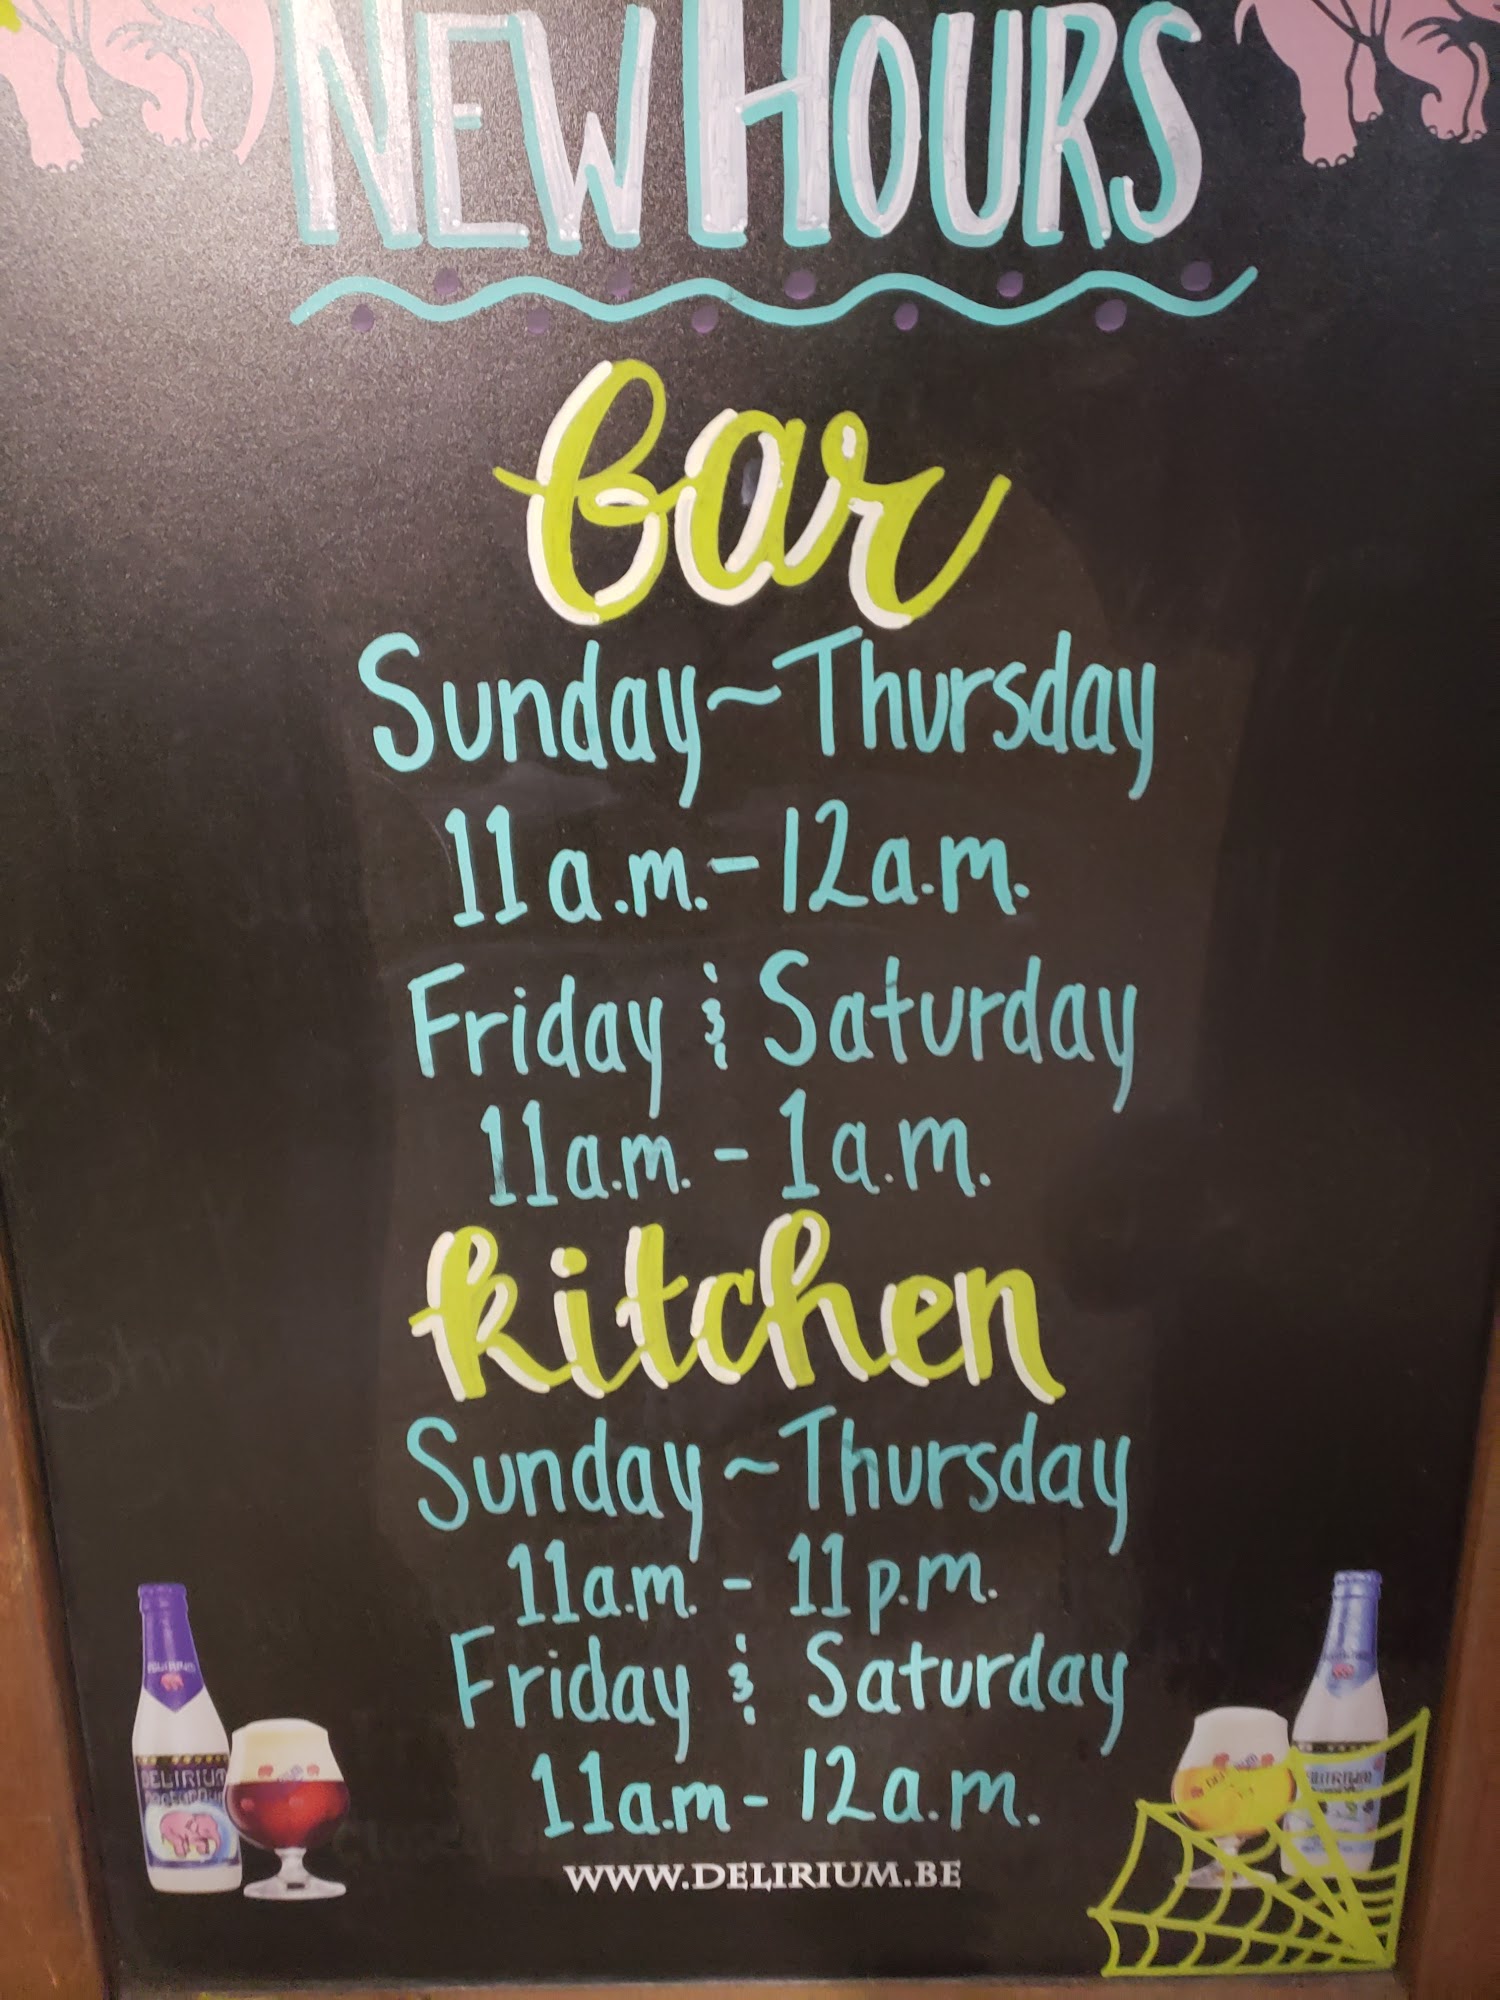 NEW HOURS
bar
Sunday~Thursday
11a.m.-12a.m.
Friday & Saturday
11a.m. - 1a.m.
kitchen
Sunday~Thursday
11a.m. - 11p.m.
Friday & Saturday
11a.m - 12a.m.
DELIRIUM
WWW.DELIRIUM.BE